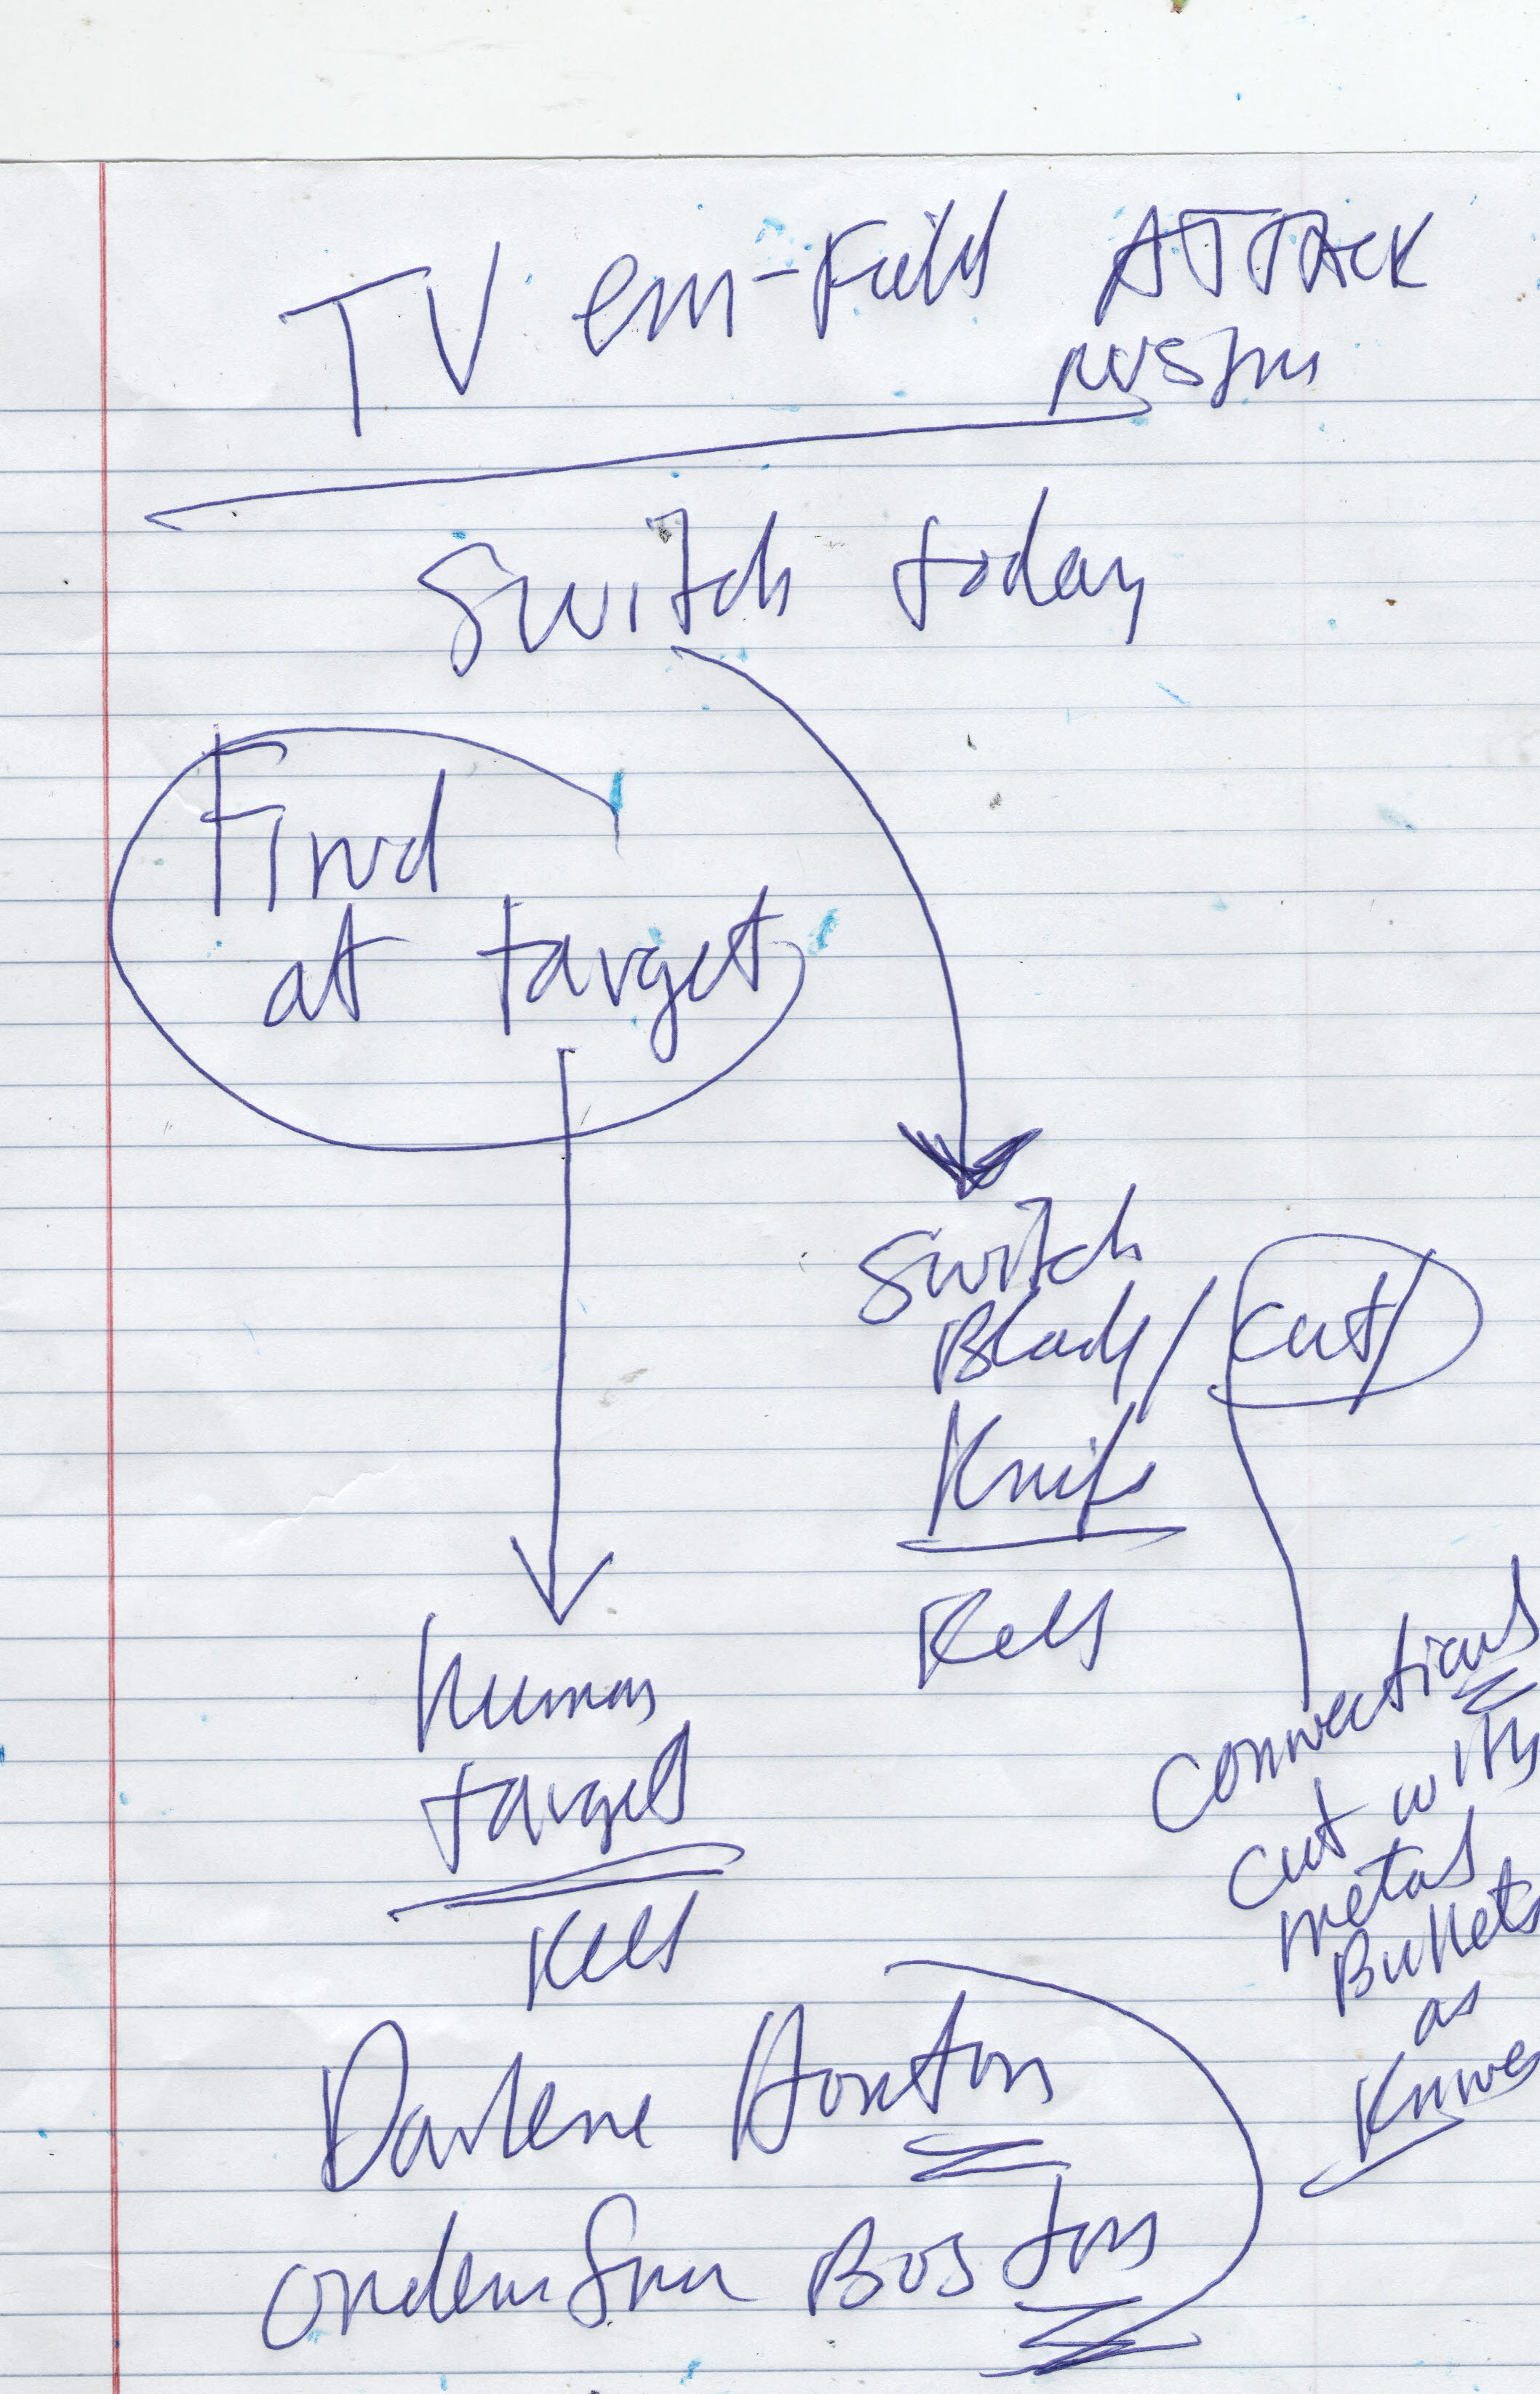 TV em-Field ATTACK
switch today
Find
at target
switch
Blade/ cut/
Knife
human
target
connections
cut with
metal
Bullets
as
Knives
Darlene Horton
order from Boston